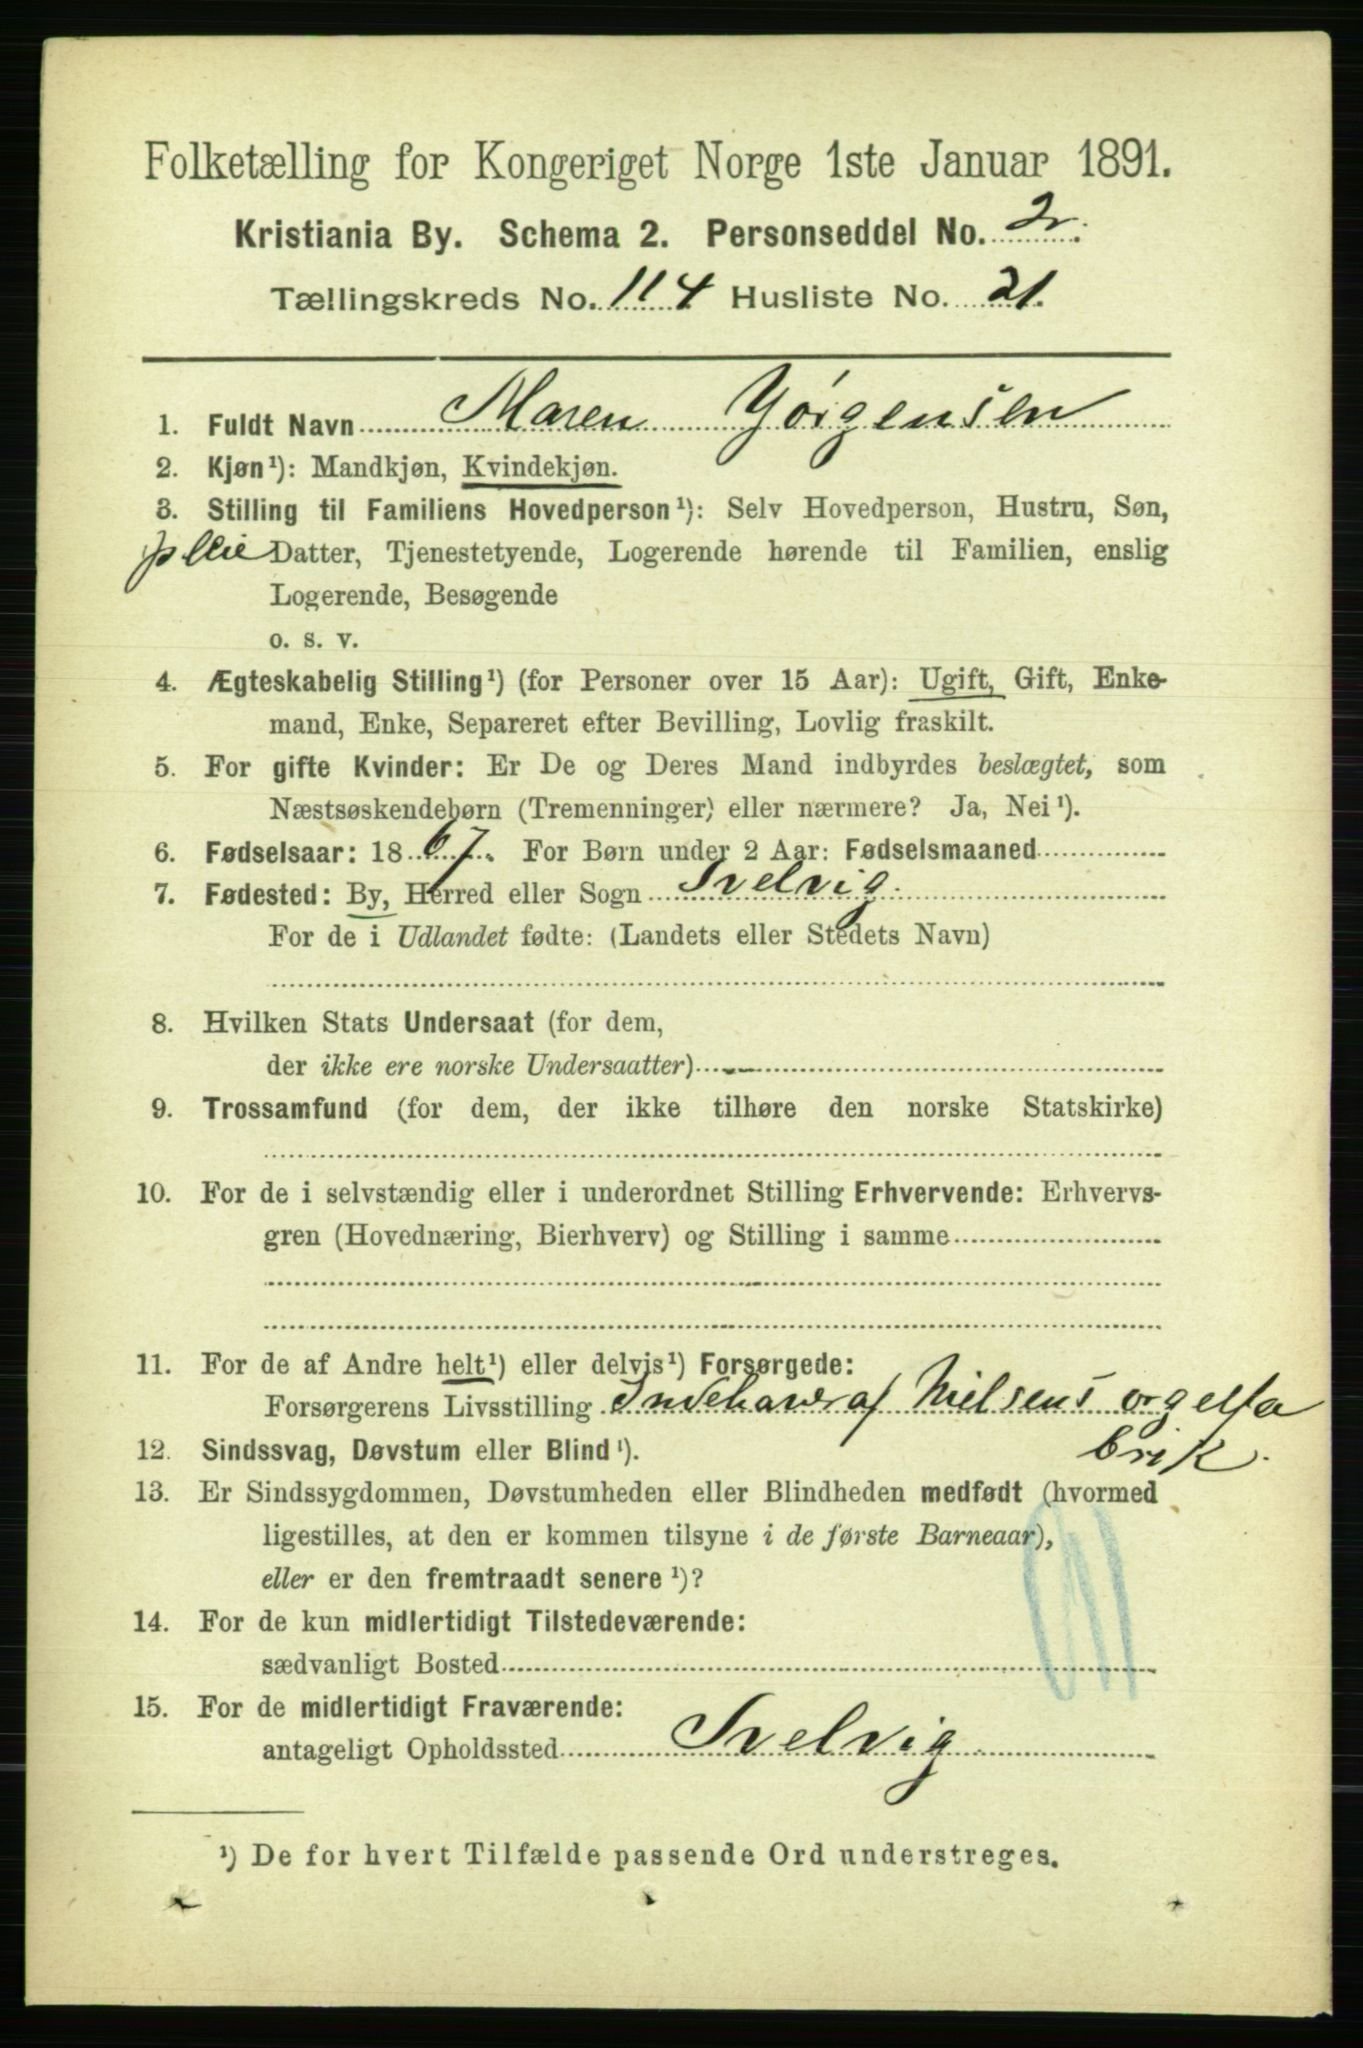 Folketælling for Kongeriget Norge 1ste Januar 1891.
Kristiania By. Schema 2. Personseddel No. 2.
Tællingskreds No. 114 Husliste No. 21.
1. Fuldt Navn Maren Jörgensen
2. Kjøn¹): Mandkjøn, Kvindekjøn.
3. Stilling til Familiens Hovedperson¹): Selv Hovedperson, Hustru, Søn,
pleie Datter, Tjenestetyende, Logerende hørende til Familien, enslig
Logerende, Besøgende
o. s. v.
4. Ægteskabelig Stilling¹) (for Personer over 15 Aar): Ugift, Gift, Enke-
mand, Enke, Separeret efter Bevilling, Lovlig fraskilt.
5. For gifte Kvinder: Er De og Deres Mand indbyrdes beslægtet, som
Næstsøskendebørn (Tremenninger) eller nærmere? Ja, Nei¹).
6. Fødselsaar: 1867. For Børn under 2 Aar: Fødselsmaaned
7. Fødested: By, Herred eller Sogn Svelvig.
For de i Udlandet fødte: (Landets eller Stedets Navn)
8. Hvilken Stats Undersaat (for dem,
der ikke ere norske Undersaatter)
9. Trossamfund (for dem, der ikke tilhøre den norske Statskirke)
10. For de i selvstændig eller i underordnet Stilling Erhvervende: Erhvervs-
gren (Hovednæring, Bierhverv) og Stilling i samme
11. For de af Andre helt¹) eller delvis¹) Forsørgede:
Forsørgerens Livsstilling Indehaver af Nielsens orgelfa
brik.
12. Sindssvag, Døvstum eller Blind¹).
13. Er Sindssygdommen, Døvstumheden eller Blindheden medfødt (hvormed
ligestilles, at den er kommen tilsyne i de første Barneaar),
eller er den fremtraadt senere¹)?
14. For de kun midlertidigt Tilstedeværende:
sædvanligt Bosted
15. For de midlertidigt Fraværende:
antageligt Opholdssted Svelvig
¹) De for hvert Tilfælde passende Ord understreges.